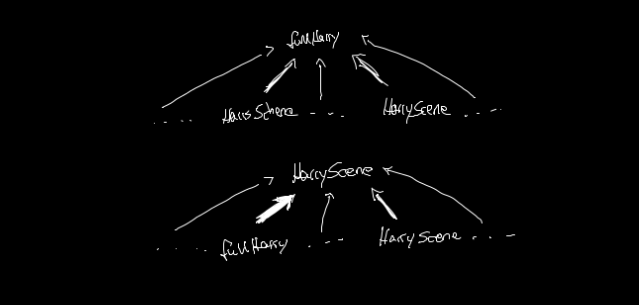 fullHarry
.... HarryScene .... HarryScene ....
HarryScene
.... fullHarry .... HarryScene ....